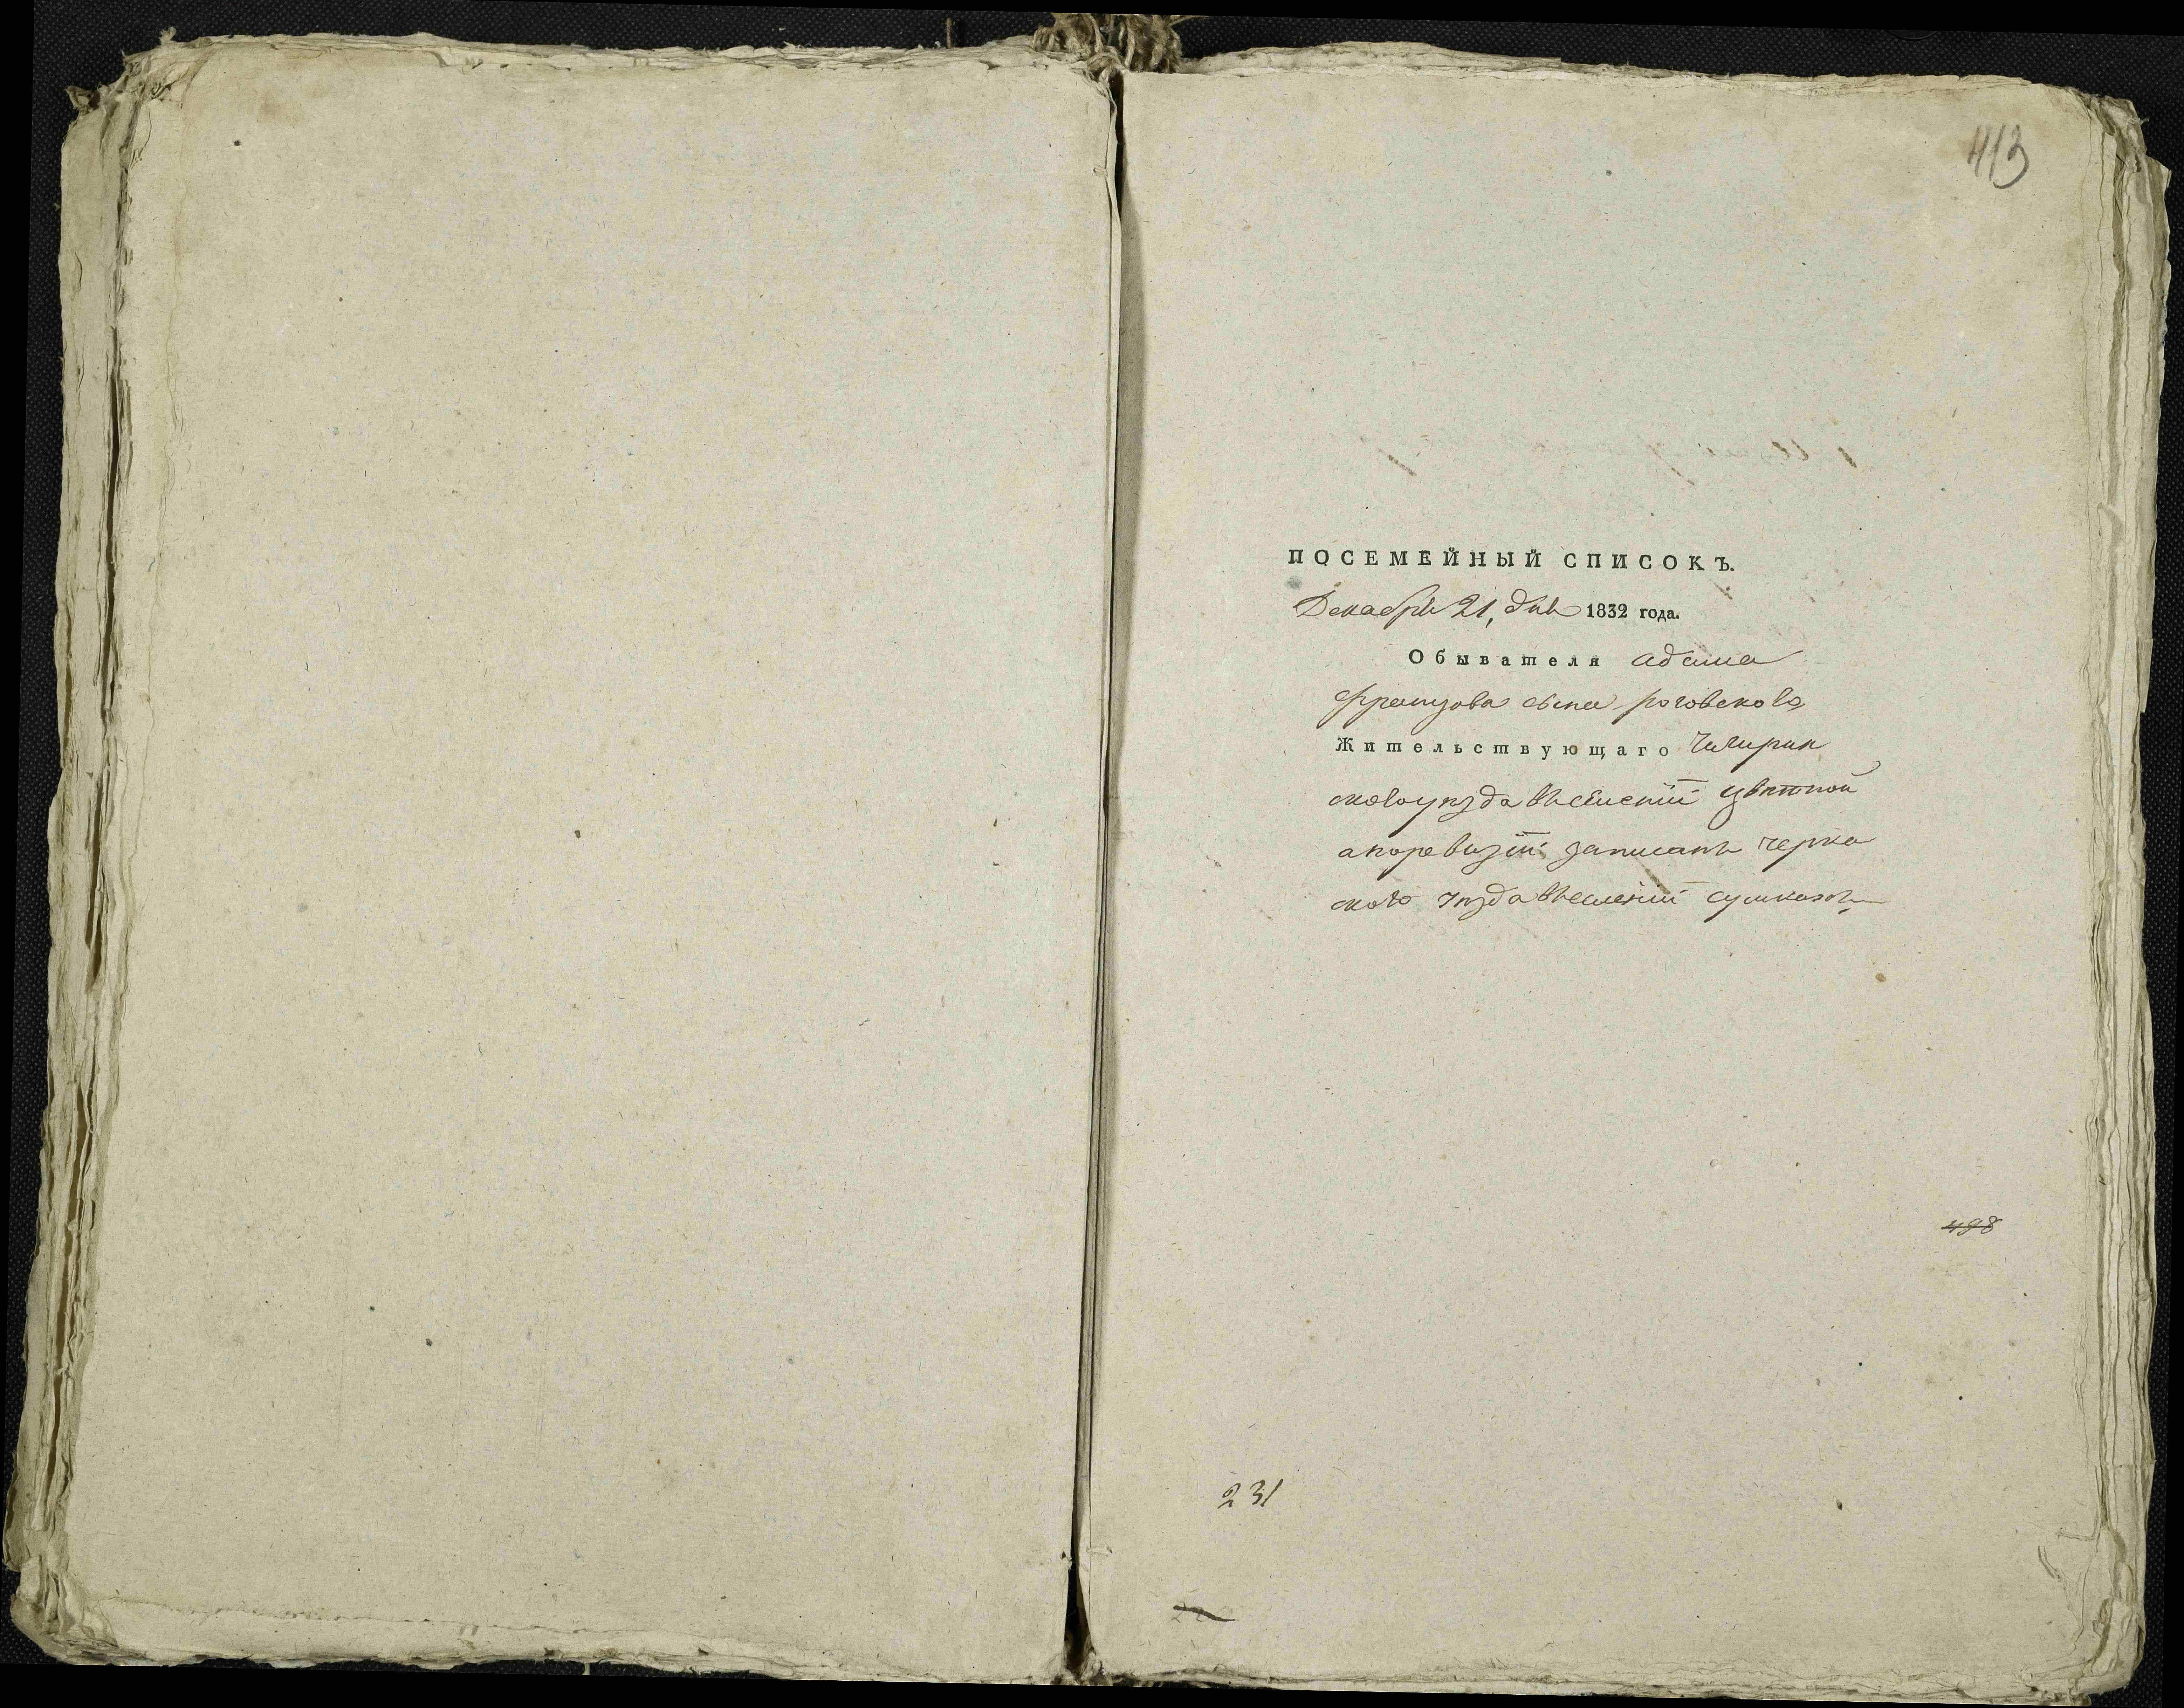 413
ПОСЕМЕЙНЫЙ СПИСОКЪ.
Декабря 21, дня 1832 года.
Обывателя адама
францова сына роговскова
Жительствующаго Чигирин
сковоуезда всѣленіи цвѣтной
апоревизіи записанъ черка
ского уезда вселеніи сушковки
498
231